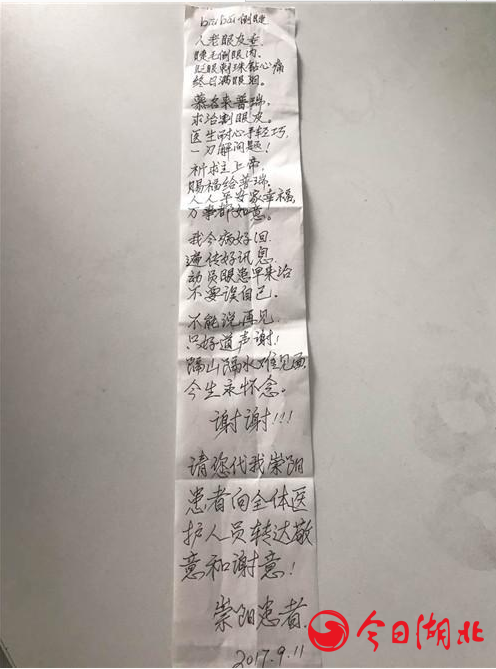 bai bai 倒睫
人老眼皮垂
睫毛倒眼内.
眨眼刺珠钻心痛
终日满眼泪.
慕名来普瑞,
求治割眼皮.
医生耐心手轻巧
一刀解问题!
祈求主上帝,
赐福给普瑞.
人人平安家幸福,
万事都如意.
我今病好回.
遍传好讯息.
动员眼患早来治
不要误自己.
不能说再见.
只好道声谢!
隔山隔水难见面,
今生永怀念。
谢谢!!!
请您代我崇阳
患者向全体医
护人员转达敬
意和谢意!
崇阳患者.
2017.9.11
今日湖北